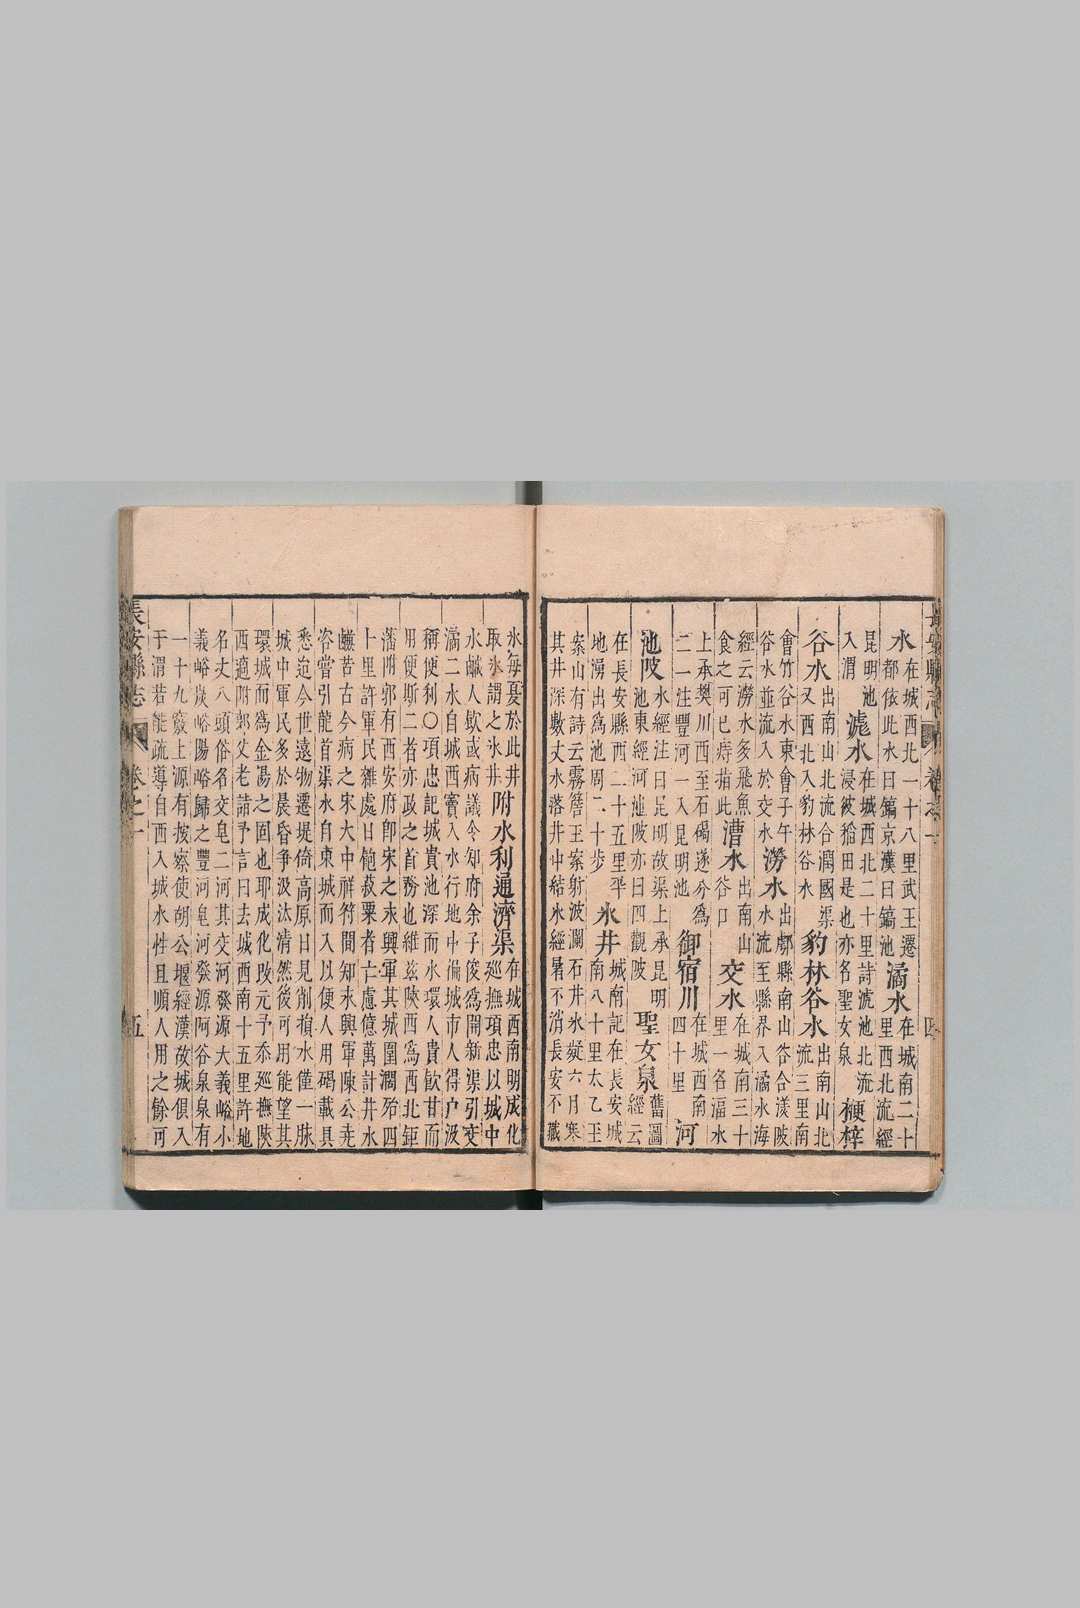 水在城西北一十八里武王遷
都依此水曰鎬京漢曰鎬池潏水在城南二十
里西北流經
昆明池
入渭滮水在城西北二十里詩滮池北流
浸彼稻田是也亦名聖女泉梗梓
谷水出南山北流合澗國渠
又西北入豹林谷水豹林谷水出南山北
流三里南
會竹谷水東會子午
谷水並流入於交水澇水出鄠縣南山澇谷合渼陂
水流至縣界入潏水海
經云澇水多飛魚
食之可已痔指此漕水出南山
谷口交水在城南三十
里一名福水
上承樊川西至石碣遂分為
二一注豐河一入昆明池御宿川在城西南
四十里河
池陂水經注曰昆明故渠上承昆明
池東經河池陂亦曰四觀陂聖女泉舊圖
經云
在長安縣西二十五里平
地湧出為池周二十步氷井城南記在長安城
南八十里太乙王
案山有詩云霧簷王案射波瀾石井氷凝六月寒
其井深數丈水落井中結氷經暑不消長安不藏
氷每夏於此井
取氷謂之氷井附水利通濟渠在城西南明成化
巡撫項忠以城中
水鹹人飲或病議令知府余子俊為開新渠引交
潏二水自城西竇入水行地中備城市人得户汲
稱便利〇項忠記城貴池深而水環人貴飲甘而
用便斯二者亦政之首務也維茲陝西為西北鉅
藩附郭有西安府卽宋之永興軍其城圍濶殆四
十里許軍民雜處日飽菽粟者亡慮億萬計井水
鹹苦古今病之宋大中祥符間知永興軍陳公堯
咨嘗引龍首渠水自東城而入以便人用碣載具
悉迨今世遠物遷堤倚高原日見削損水僅一脉
城中軍民多於晨昏爭汲汰清然後可用能望其
環城而為金湯之固也耶成化改元予忝廵撫陝
西適附郭艾老請予言曰去城西南十五里許地
名丈八頭俗名交皂二河其交河發源大義峪小
義峪炭峪陽峪歸之豐河皂河發源阿谷泉泉有
一十九竅上源有按察使胡公堰經漢故城俱入
于渭若能疏導自西入城水性且順人用之餘可
長安縣志
卷之一
五